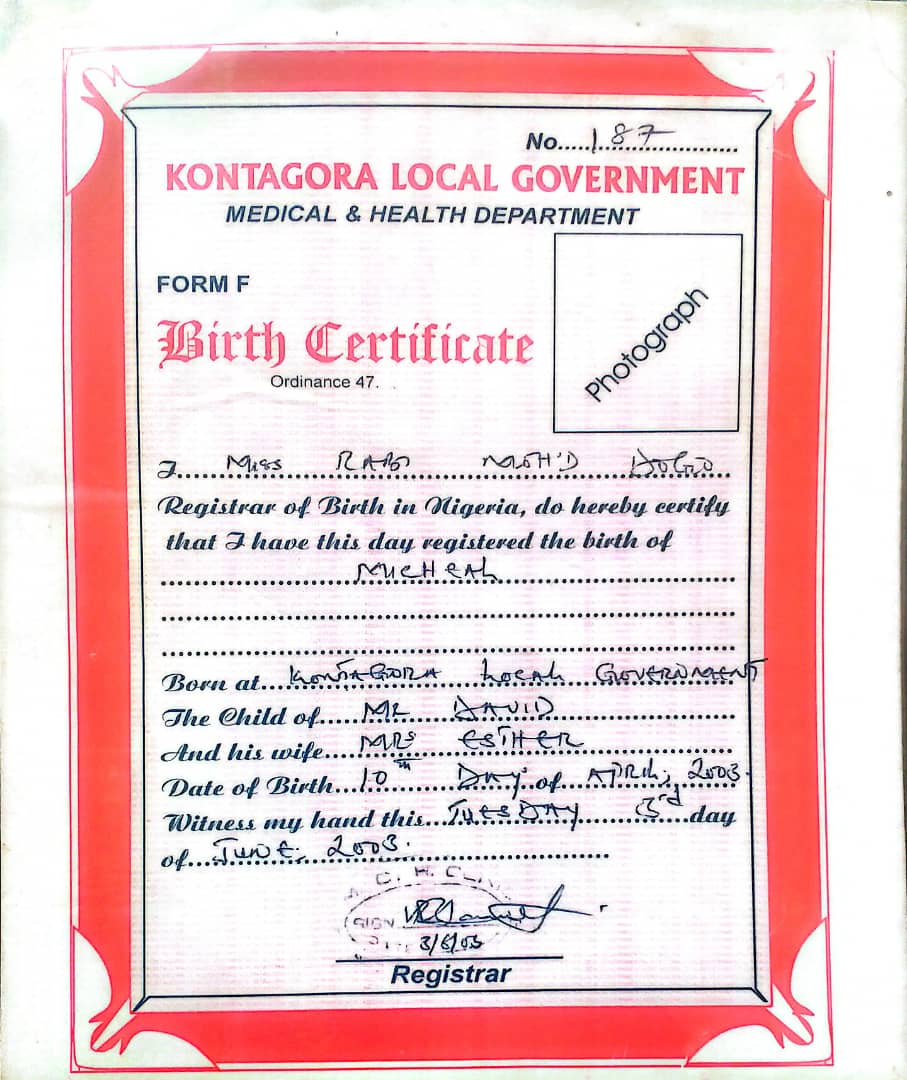 No.....187................
KONTAGORA LOCAL GOVERNMENT
MEDICAL & HEALTH DEPARTMENT
FORM F
Photograph
Birth Certificate
Ordinance 47.
I......MISS RABI MOH'D
Registrar of Birth in Nigeria, do hereby certify
that I have this day registered the birth of
MICHEAL
Born at...KONTAGORA LOCAL GOVERNMENT
The Child of.....MR DAVID
And his wife....MRS ESTHER
Date of Birth...10th DAY of APRIL, 2003.
Witness my hand this...TUESDAY 3rd day
of...JUNE, 2003.
SIGN
3/6/03
Registrar